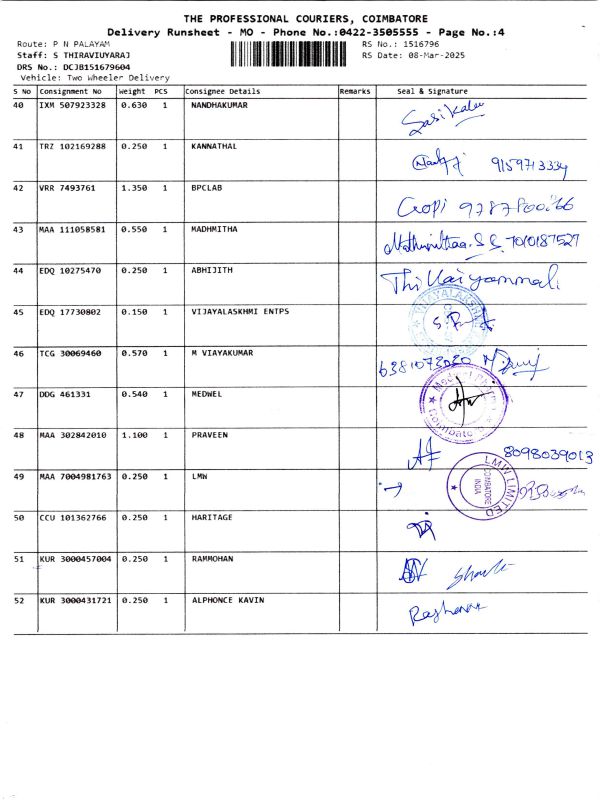 THE PROFESSIONAL COURIERS, COIMBATORE
Delivery Runsheet - MO - Phone No.:0422-3505555 - Page No.:4
Route: P N PALAYAM RS No.: 1516796
Staff: S THIRAVIUYARAJ RS Date: 08-Mar-2025
DRS No.: DCJB151679604
Vehicle: Two Wheeler Delivery
S No Consignment No Weight PCS Consignee Details Remarks Seal & Signature
40 IXM 507923328 0.630 1 NANDHAKUMAR Sasikala
41 TRZ 102169288 0.250 1 KANNATHAL 9159713334
42 VRR 7493761 1.350 1 BPCLAB Gopi
43 MAA 111058581 0.550 1 MADHMITHA 7010187527
44 EDQ 10275470 0.250 1 ABHIJITH
45 EDQ 17730802 0.150 1 VIJAYALASKHMI ENTPS
46 TCG 30069460 0.570 1 M VIAYAKUMAR 6381073020
47 DDG 461331 0.540 1 MEDWEL
48 MAA 302842010 1.100 1 PRAVEEN 8098039013
49 MAA 7004981763 0.250 1 LMW LMW LIMITED COIMBATORE INDIA
50 CCU 101362766 0.250 1 HARITAGE
51 KUR 3000457004 0.250 1 RAMMOHAN
52 KUR 3000431721 0.250 1 ALPHONCE KAVIN